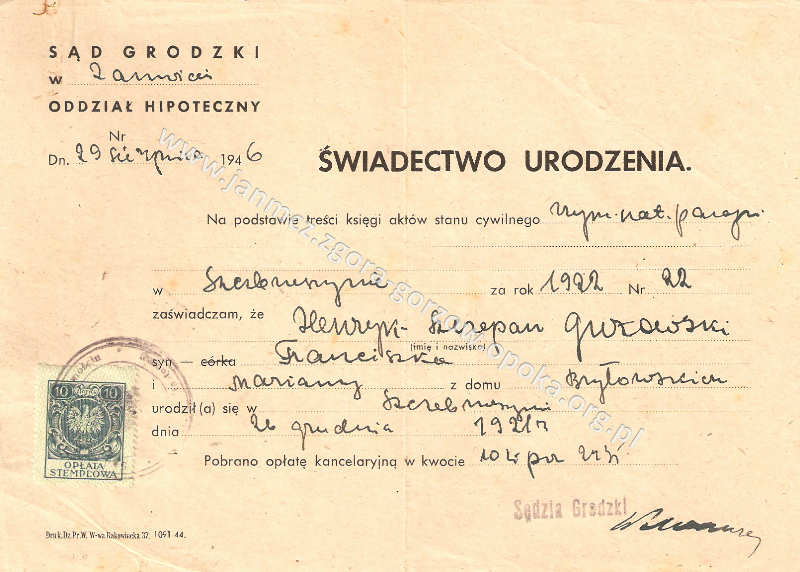 SĄD GRODZKI
w Zamościu
ODDZIAŁ HIPOTECZNY
Nr
Dn. 29 sierpnia 1946
ŚWIADECTWO URODZENIA.
Na podstawie treści księgi aktów stanu cywilnego Rzym. kat. parafji
w Szczebrzeszynie za rok 1922 Nr 22
zaświadczam, że Henryk-Szczepan Gurowski
(imię i nazwisko)
syn – córka Franciszka
i Marianny z domu Bryłowskich
urodził (a) się w Szczebrzeszynie
dnia 26 grudnia 1921 r
Pobrano opłatę kancelaryjną w kwocie 10 zł
Sędzia Grodzki
10 10
OPŁATA
STEMPLOWA
Druk. Dz. Pr. W. W-wa. Rakowiecka 37. 1091 44.
www.janmcz.zgora-gorzow.opoka.org.pl